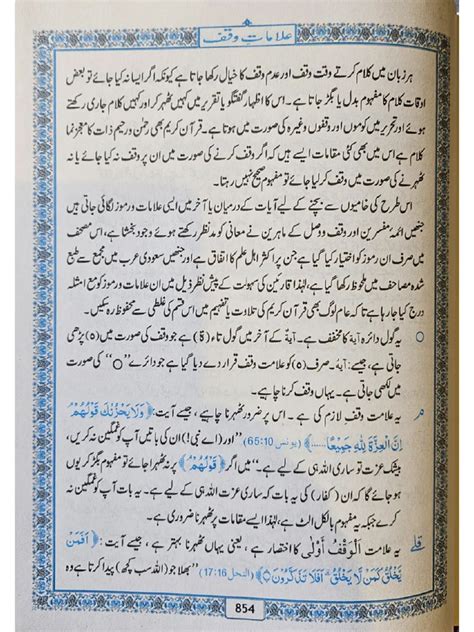 علاماتِ وقف
ہر زبان میں کلام کرتے وقت وقف اور عدم وقف کا خیال رکھا جاتا ہے کیونکہ اگر ایسا نہ کیا جائے تو بعض
اوقات کلام کا مفہوم بدل یا بگڑ جاتا ہے۔ اس کا اظہار گفتگو یا تقریر میں کہیں ٹھہر کر اور کہیں کلام جاری رکھتے
ہوئے اور تحریر میں کوموں اور وقفوں وغیرہ کی صورت میں ہوتا ہے۔ قرآن کریم بھی رحمٰن و رحیم ذات کا معجز نما
کلام ہے اس میں بھی کئی مقامات ایسے ہیں کہ اگر وقف کرنے کی صورت میں ان پر وقف نہ کیا جائے یا نہ
ٹھہرنے کی صورت میں وقف کر لیا جائے تو مفہوم صحیح نہیں رہتا۔
اس طرح کی خامیوں سے بچنے کے لیے آیات کے درمیان یا آخر میں ایسی علامات و رموز لگائی جاتی ہیں
جنھیں ائمۂ مفسرین اور وقف و وصل کے ماہرین نے معانی کو مدنظر رکھتے ہوئے وجود بخشا ہے، اس مصحف
میں صرف ان رموز کو اختیار کیا گیا ہے جن پر اکثر اہل علم کا اتفاق ہے اور جنھیں سعودی عرب میں مجمع سے طبع
شدہ مصاحف میں ملحوظ رکھا گیا ہے، لہٰذا قارئین کی سہولت کے پیش نظر ذیل میں ان علامات و رموز کو مع امثلہ
درج کیا جاتا ہے تاکہ عام لوگ بھی قرآن کریم کی تلاوت یا تفہیم میں اس قسم کی غلطی سے محفوظ رہ سکیں۔
○ یہ گول دائرہ آیۃ کا مخفف ہے۔ آیۃ کے آخر میں گول تاء (ۃ) ہے جو وقف کی صورت میں (ہ) پڑھی
جاتی ہے، جیسے: آیہ۔ صرف (ہ) کو علامت وقف قرار دے دیا گیا ہے، جو دائرے ”○“ کی صورت
میں لکھی جاتی ہے۔ یہاں وقف کرنا چاہیے۔
م یہ علامت وقف لازم کی ہے۔ اس پر ضرور ٹھہرنا چاہیے، جیسے آیت: ﴿وَلَا يَحْزُنْكَ قَوْلُهُمْ
اِنَّ الْعِزَّةَ لِلّٰهِ جَمِيْعًا ......﴾ (یونس 65:10) ”اور (اے نبی!) ان کی باتیں آپ کو غمگین نہ کریں،
بیشک عزت تو ساری اللہ ہی کے لیے ہے۔“ میں اگر ﴿قَوْلُهُمْ﴾ پر نہ ٹھہرا جائے تو مفہوم بگڑ کر یوں
ہو جائے گا کہ ان (کفار) کی یہ بات کہ ساری عزت اللہ ہی کے لیے ہے۔ یہ بات آپ کو غمگین نہ
کرے جبکہ یہ مفہوم بالکل الٹ ہے، لہٰذا ایسے مقامات پر ٹھہرنا ضروری ہے۔
قلے یہ علامت اَلْوَقْفُ اَوْلٰى کا اختصار ہے، یعنی یہاں ٹھہرنا بہتر ہے، جیسے آیت: ﴿اَفَمَنْ
يَّخْلُقُ كَمَنْ لَّا يَخْلُقُ اَفَلَا تَذَكَّرُوْنَ○﴾ (النحل 17:16) ”بھلا جو (اللہ سب کچھ) پیدا کرتا ہے وہ
854